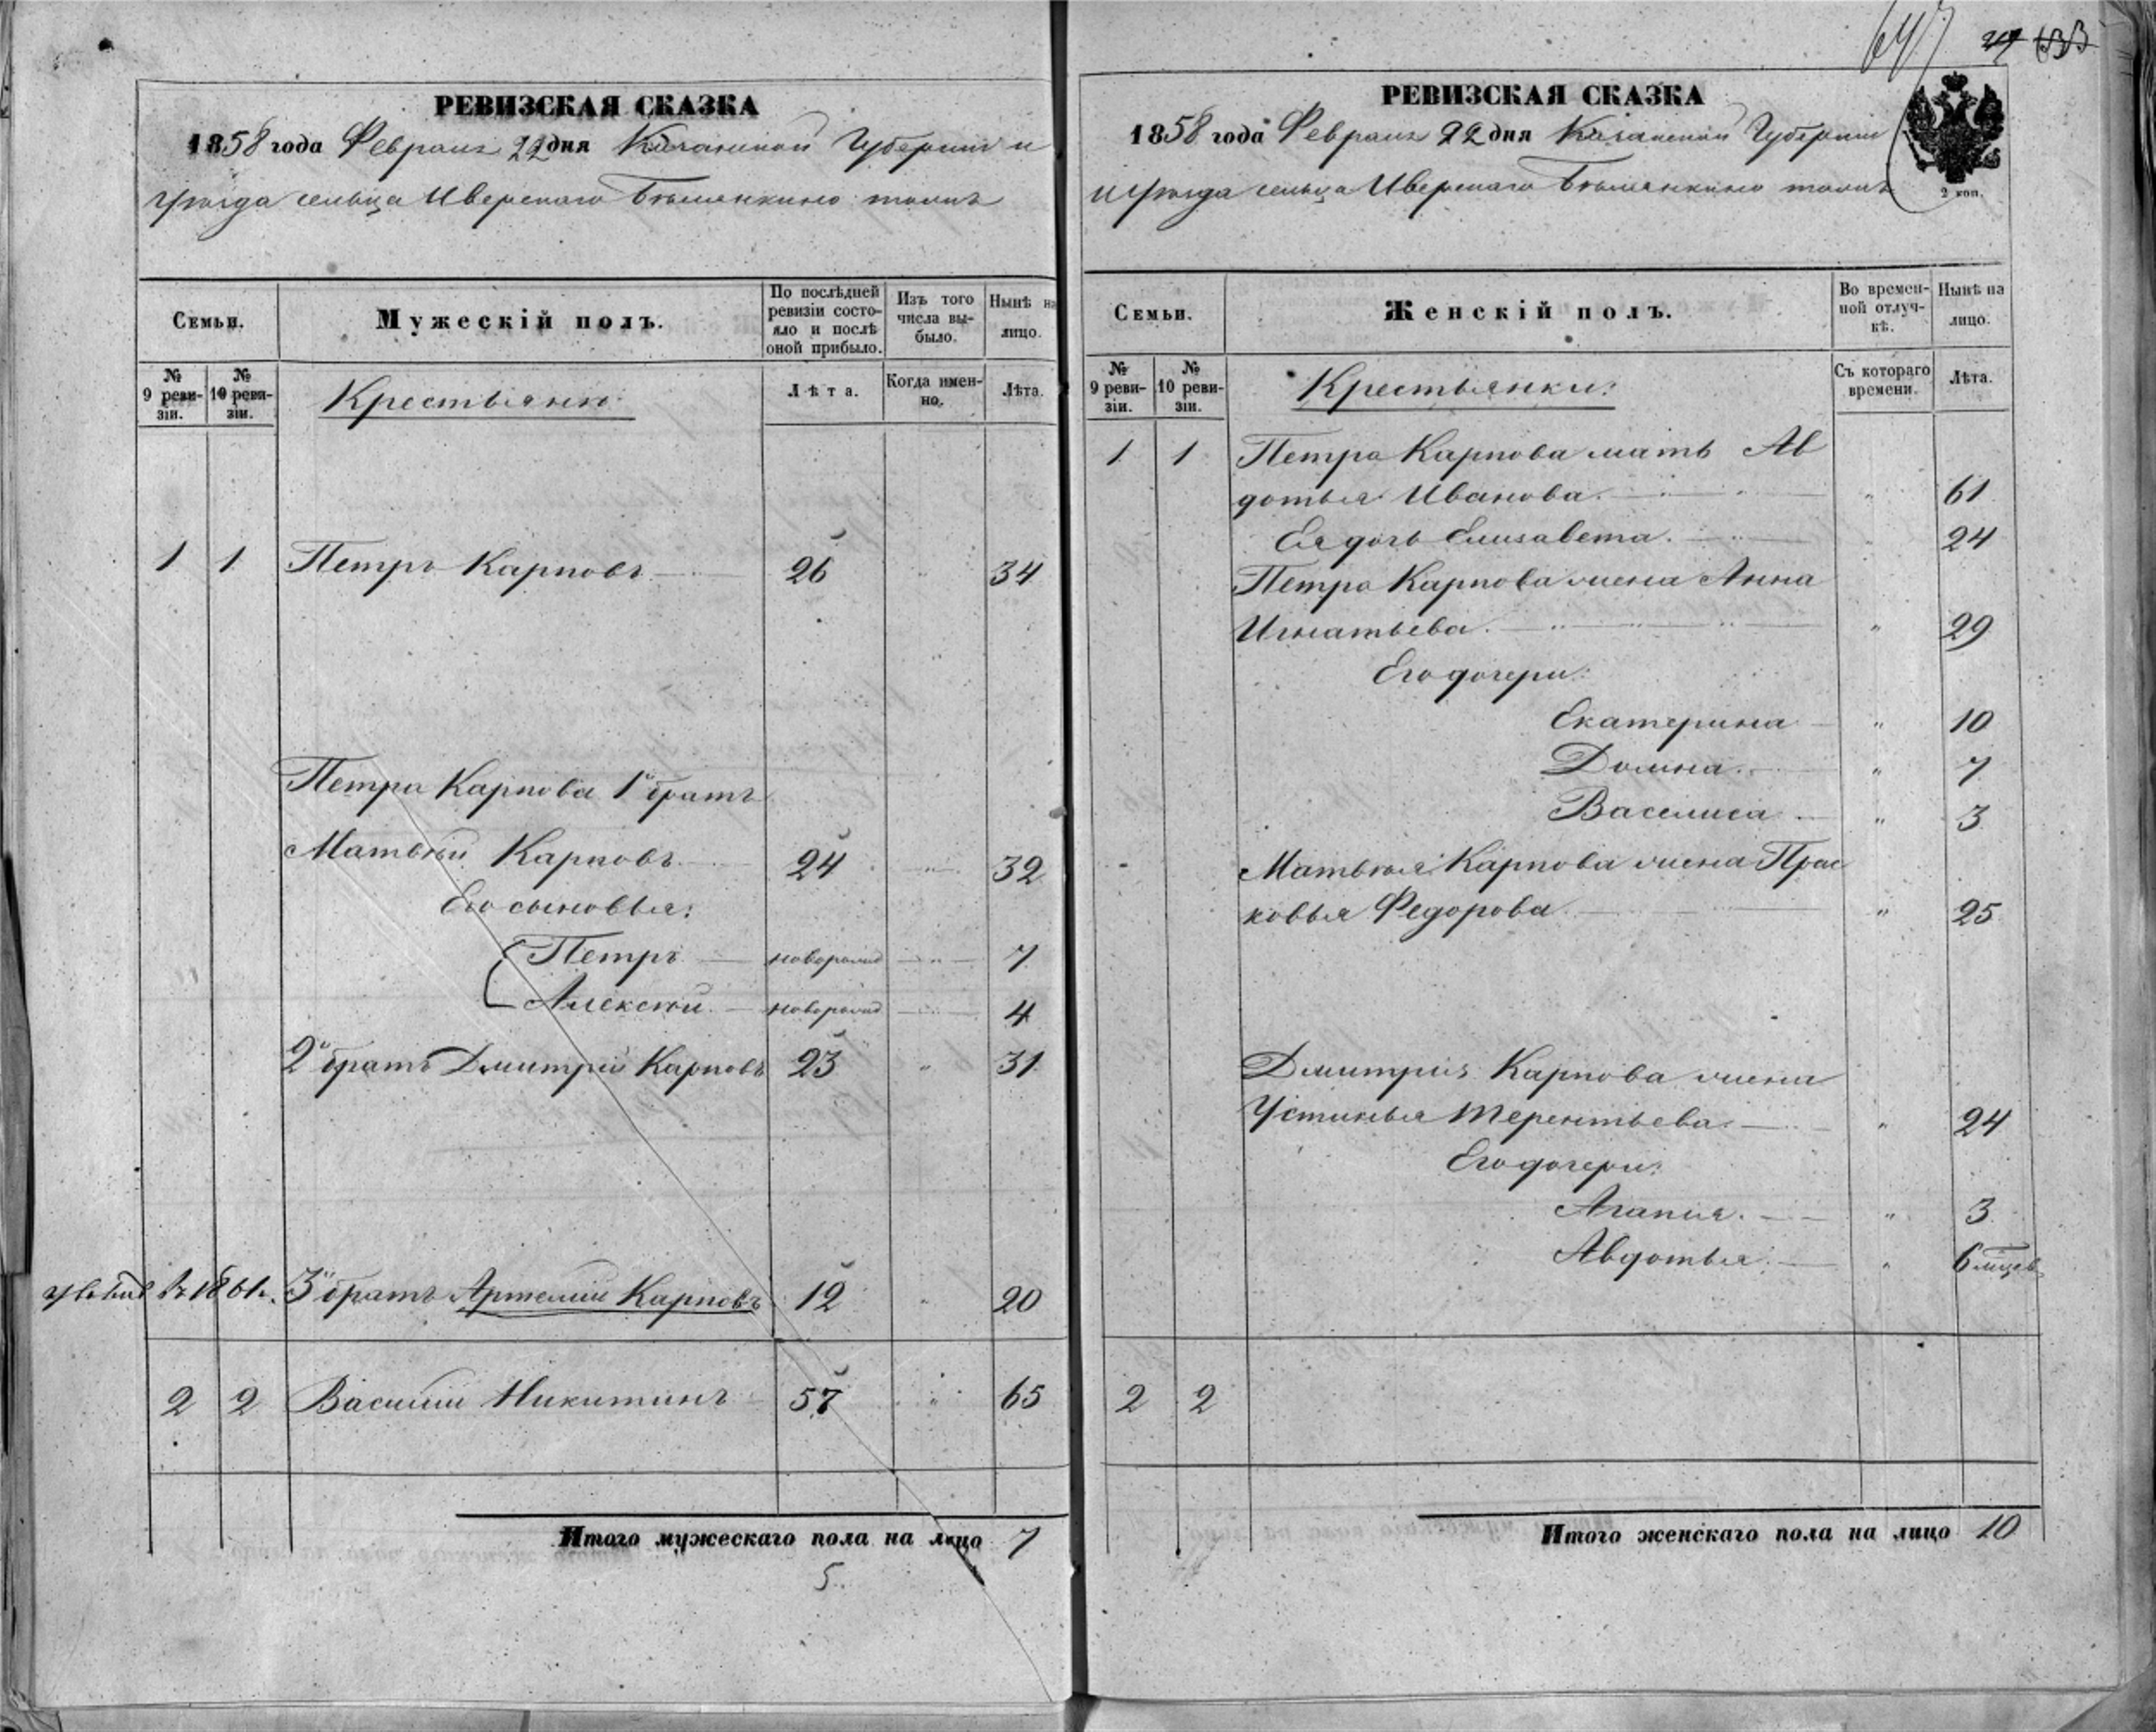 РЕВИЗСКАЯ СКАЗКА
1858 года Февраля 22 дня Казанской Губернии и
уѣзда сельца Иверскаго Бѣтменкино тожъ
Семьи.
Мужескій полъ.
По послѣдней ревизіи состояло и послѣ оной прибыло.
Изъ того числа выбыло.
Нынѣ на лицо.
№ 9 ревизіи.
№ 10 ревизіи.
Крестьяне:
Лѣта.
Когда именно.
Лѣта.
1 1 Петръ Карповъ 26 " 34
Петра Карпова 1й братъ
Матвѣй Карповъ 24 " 32
Его сыновья:
Петръ новорожд " 7
Алексѣй новорожд " 4
2й братъ Дмитрій Карповъ 23 " 31
въ 1861 г. 3й братъ Артемій Карповъ 12 " 20
2 2 Василій Никитинъ 57 " 65
Итого мужескаго пола на лицо 7
5.
647
133
РЕВИЗСКАЯ СКАЗКА
1858 года Февраля 22 дня Казанской Губерніи
и Уѣзда сельца Иверскаго тожъ
2 коп.
Семьи.
Женскій полъ.
Во временной отлучкѣ.
Нынѣ на лицо.
№ 9 ревизіи.
№ 10 ревизіи.
Крестьянки:
Съ котораго времени.
Лѣта.
1 1 Петра Карпова мать Ав
дотья Иванова " 61
Ея дочь Елисавета " 24
Петра Карпова жена Анна
Игнатьева " 29
Его дочери:
Екатерина " 10
Домна " 7
Василиса " 3
Матвѣя Карпова жена Прас
ковья Федорова " 25
Дмитрія Карпова жена
Устинья Терентьева " 24
Его дочери:
Агапия " 3
Авдотья " 6 мцев
2 2
Итого женскаго пола на лицо 10